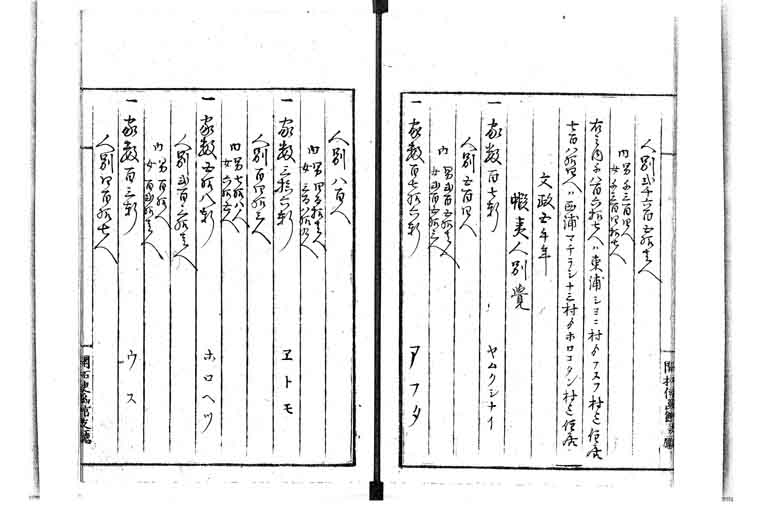 人別弐千六百五拾壱人
内 男千三百四人
女千三百四拾七人
右之内千八百六拾七人ハ東浦シヨニ村ゟフヌフ村迄住居
七百八拾四人ハ西浦マチラシナ三村ゟホロコタン村迄住居
文政五午年
蝦夷人別覚
一 家数百七軒 ヤムクシナイ
人別五百四人
内 男弐百五拾壱人
女弐百五拾三人
一 家数百七拾六軒 アフタ
人別八百人
内 男四百拾壱人
一 家数三拾六軒 ヱトモ
人別百四拾三人
内 男七拾八人
女六拾五人
一 家数五拾八軒 ホロヘツ
人別弐百六拾壱人
一 家数百三軒 ウス
人別四百拾七人